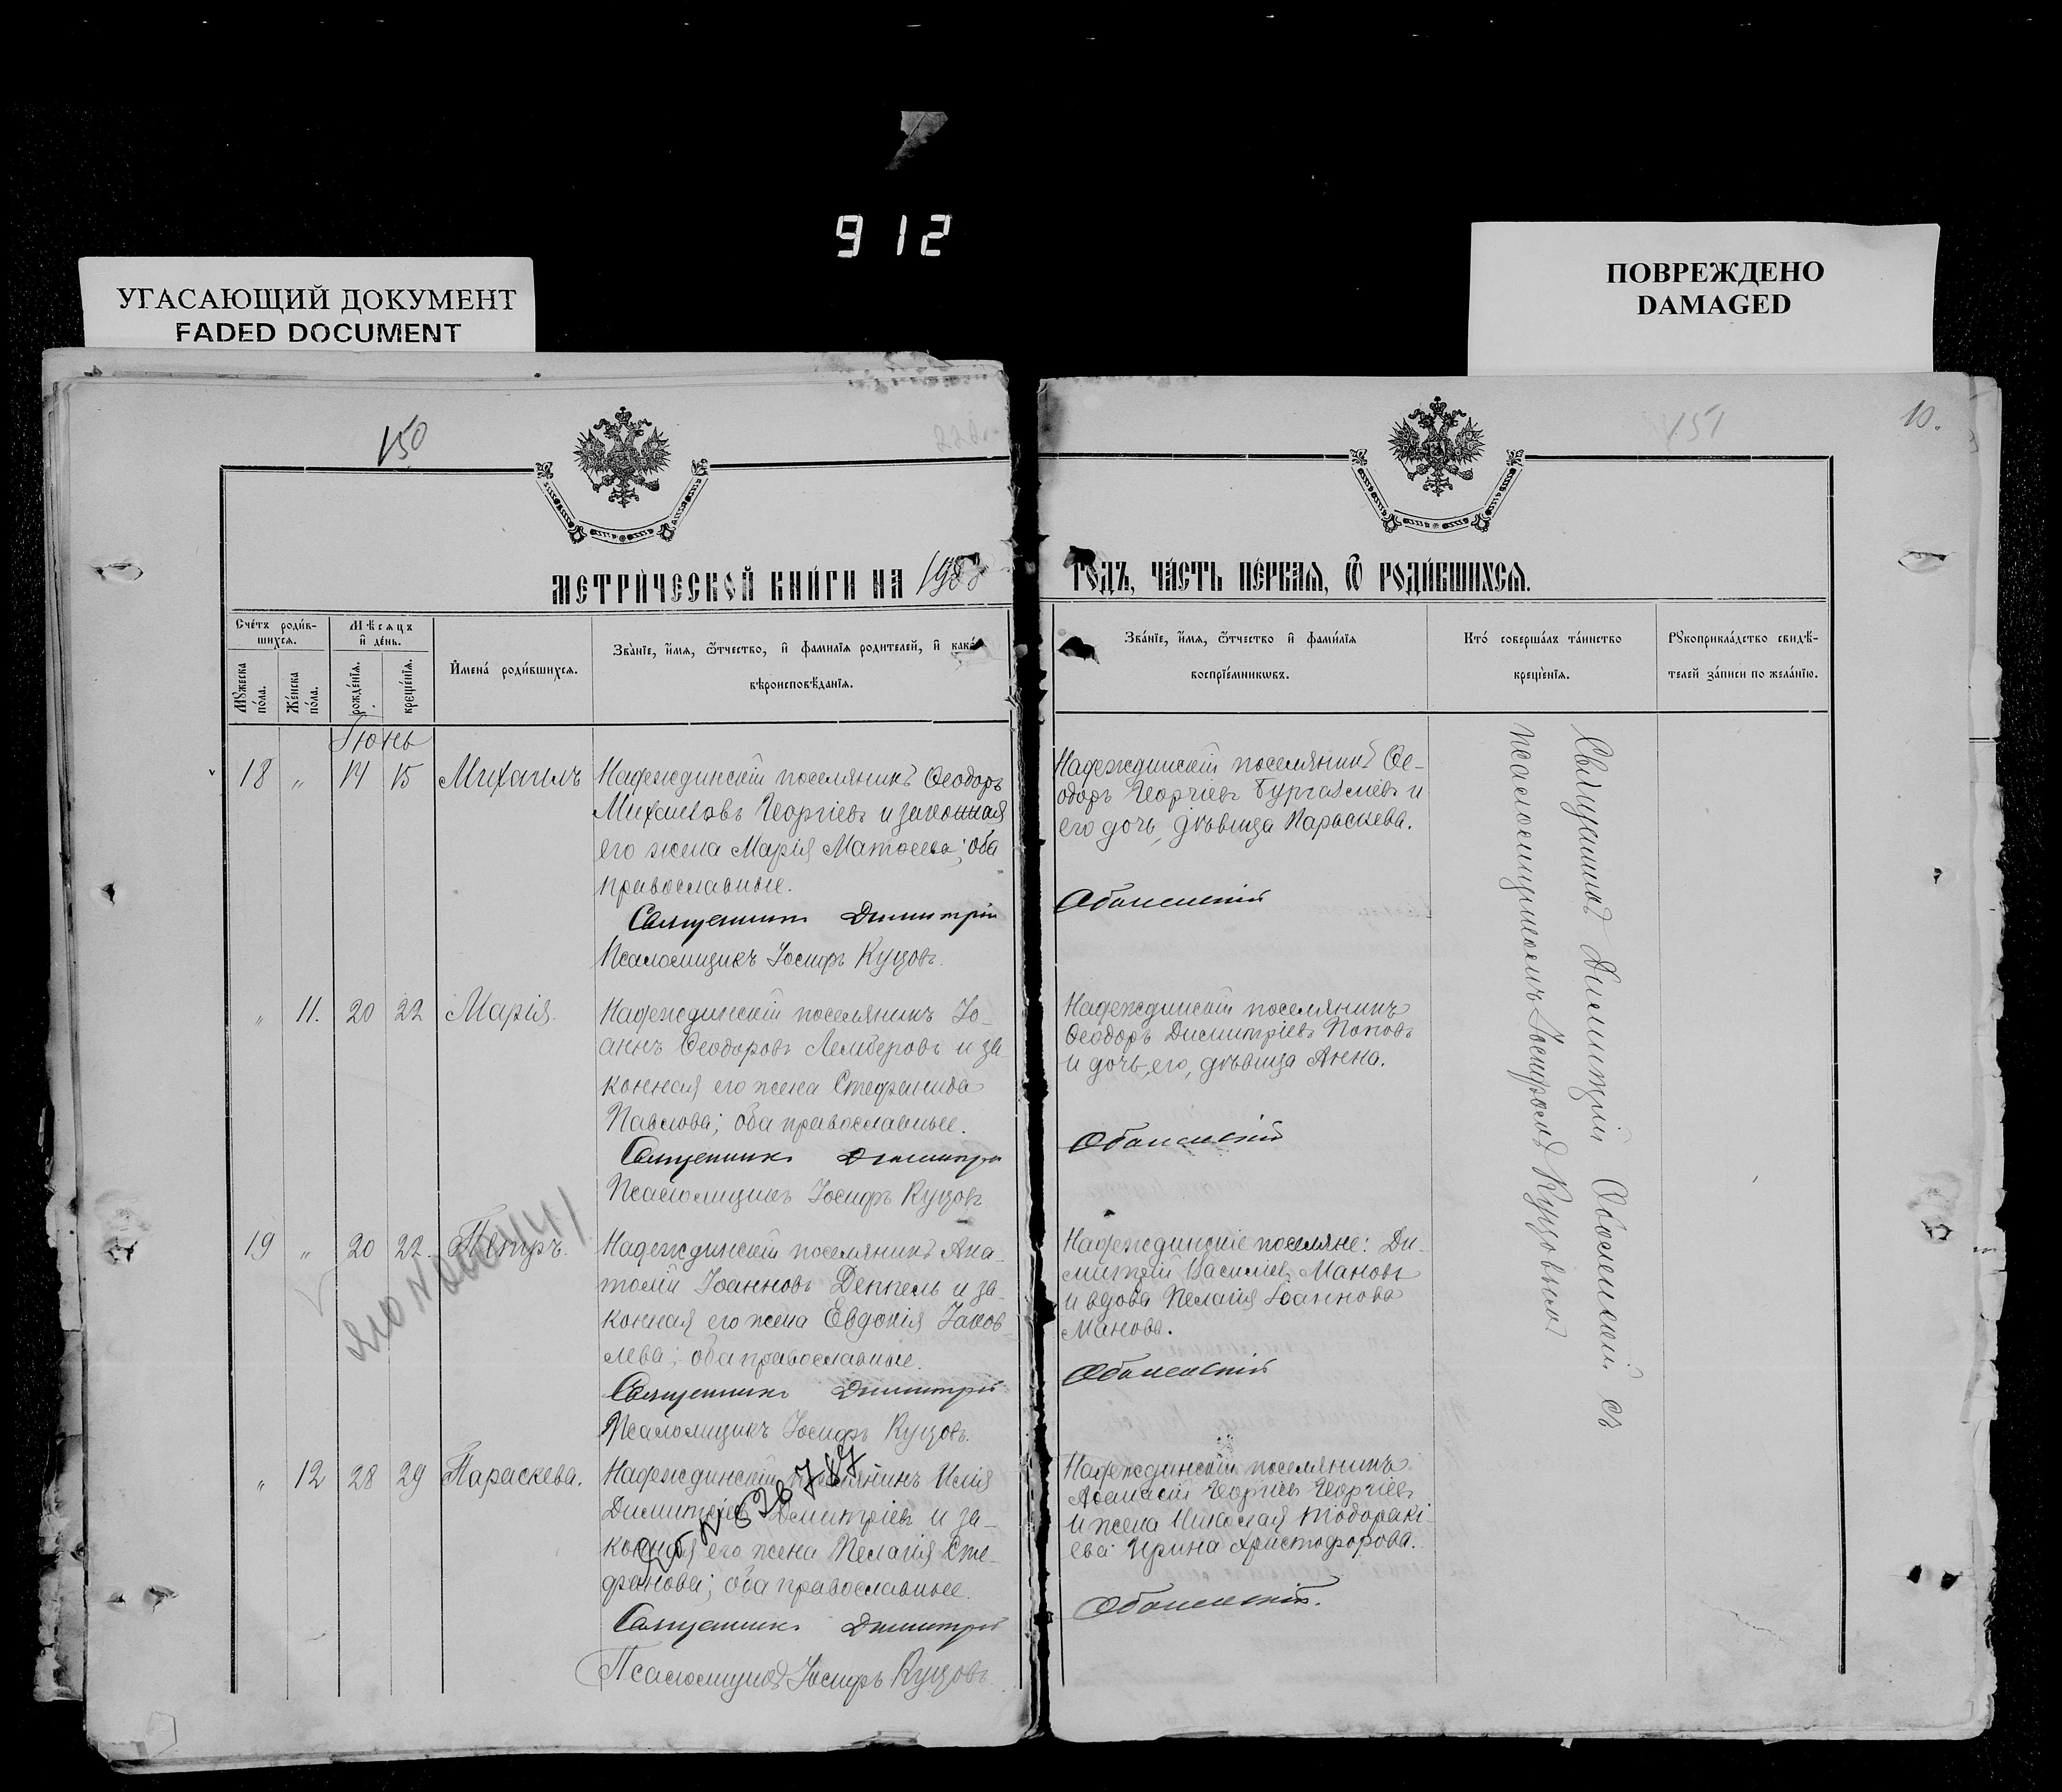 912
УГАСАЮЩИЙ ДОКУМЕНТ
FADED DOCUMENT
ПОВРЕЖДЕНО
DAMAGED
150
151
10.
МЕТРИ́ЧЕСКОЙ КНИ́ГИ НА
ГОДЪ, ЧА́СТЬ ПЕ́РВАѦ, Ѿ РОДИ́ВШИХСѦ.
Счетъ роди́в-
шихсѧ.
Мꙋжеска по́ла.
Же́нска по́ла.
Мѣсѧцъ
и҆ де́нь.
рожде́нїѧ.
креще́нїѧ.
И҆мена̀ роди́вшихсѧ.
Зва́нїе, и҆́мѧ, ѻ҆́тчество, и҆ фами́лїѧ роди́телей, и҆ како́
вѣроисповѣ́данїѧ.
Зва́нїе, и҆́мѧ, ѻ҆́тчество и҆ фами́лїѧ
воспрїе́мникѡвъ.
Кто̀ соверша́лъ та́инство
креще́нїѧ.
Рꙋкоприкла́дство свидѣ́-
телей за́писи по жела́нїю.
Іюнь
18 " 14 15 Михаилъ
Надеждинскій поселянинъ Ѳеодоръ
Михаиловъ Георгіевъ и законная
его жена Марія Матѳеева; оба
православные.
Священникъ Димитрій
Псаломщикъ Іосифъ Куцовъ.
Надеждинскій поселянинъ Ѳе-
одоръ Георгіевъ и
его дочь, дѣвица Параскева.
" 11. 20 22 Марія.
Надеждинскій поселянинъ Іо-
аннъ Ѳеодоровъ Лемберовъ и за-
конная его жена Стефанида
Павлова; оба православные.
Священникъ Димитрій
Псаломщикъ Іосифъ Куцовъ
Надеждинскій поселянинъ
Ѳеодоръ Димитріевъ Поповъ
и дочь его, дѣвица Анна.
19 " 20 22. Петръ.
Надеждинскій поселянинъ Ана-
толій Іоанновъ Деппель и за-
конная его жена Евдокія Іаков-
лева; оба православные.
Священникъ Димитрій
Псаломщикъ Іосифъ Куцовъ.
Надеждинскіе поселяне: Ди-
митрій Василіевъ Мановъ
и вдова Пелагія Іоаннова
Манова.
" 12 28 29 Параскева.
Надеждинскій поселянинъ Илія
Димитріевъ Димитріевъ и за-
конная его жена Пелагія Сте-
фанова; оба православные.
Священникъ Димитрій
Псаломщикъ Іосифъ Куцовъ.
Надеждинскій поселянинъ
Аѳанасій Георгіевъ Георгіевъ
и жена Николая Тодораки-
ева Ирина Христофорова.
Священникъ Димитрій съ
псаломщикомъ Іосифомъ Куцовымъ